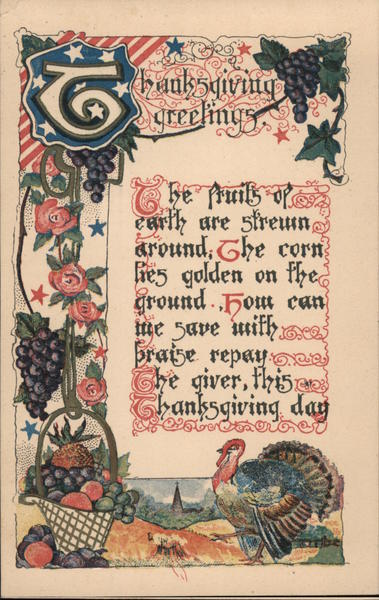 Thanksgiving
greetings
The fruits of
earth are strewn
around, The corn
lies golden on the
ground. How can
we save with
praise repay
The giver, this
Thanksgiving day